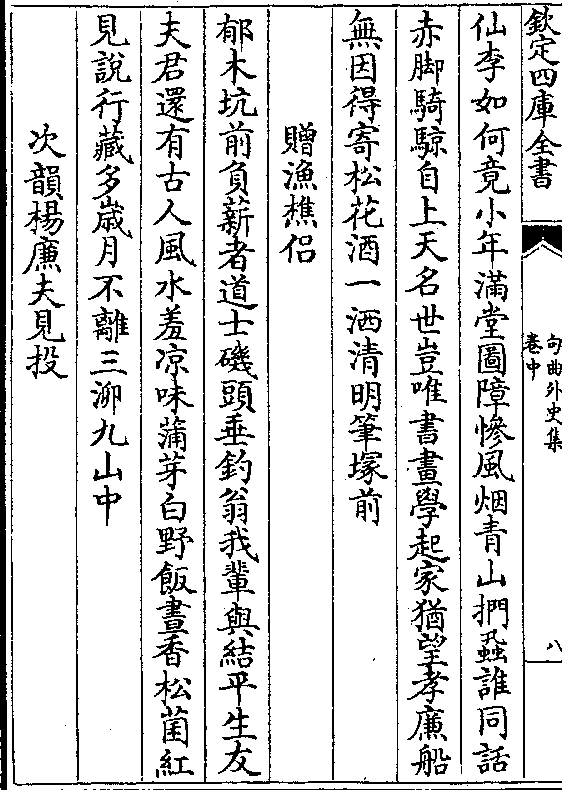 欽定四庫全書
句曲外史集
卷中
八
仙李如何竟小年滿堂圖障慘風烟青山捫蝨誰同話
赤脚騎鯨自上天名世豈唯書畫學起家猶望孝廉船
無因得寄松花酒一洒清明筆塚前
贈漁樵侣
郁木坑前負薪者道士磯頭垂釣翁我輩與結平生友
夫君還有古人風水羞凉味蒲芽白野飯晝香松菌紅
見說行藏多歲月不離三泖九山中
次韻楊廉夫見投